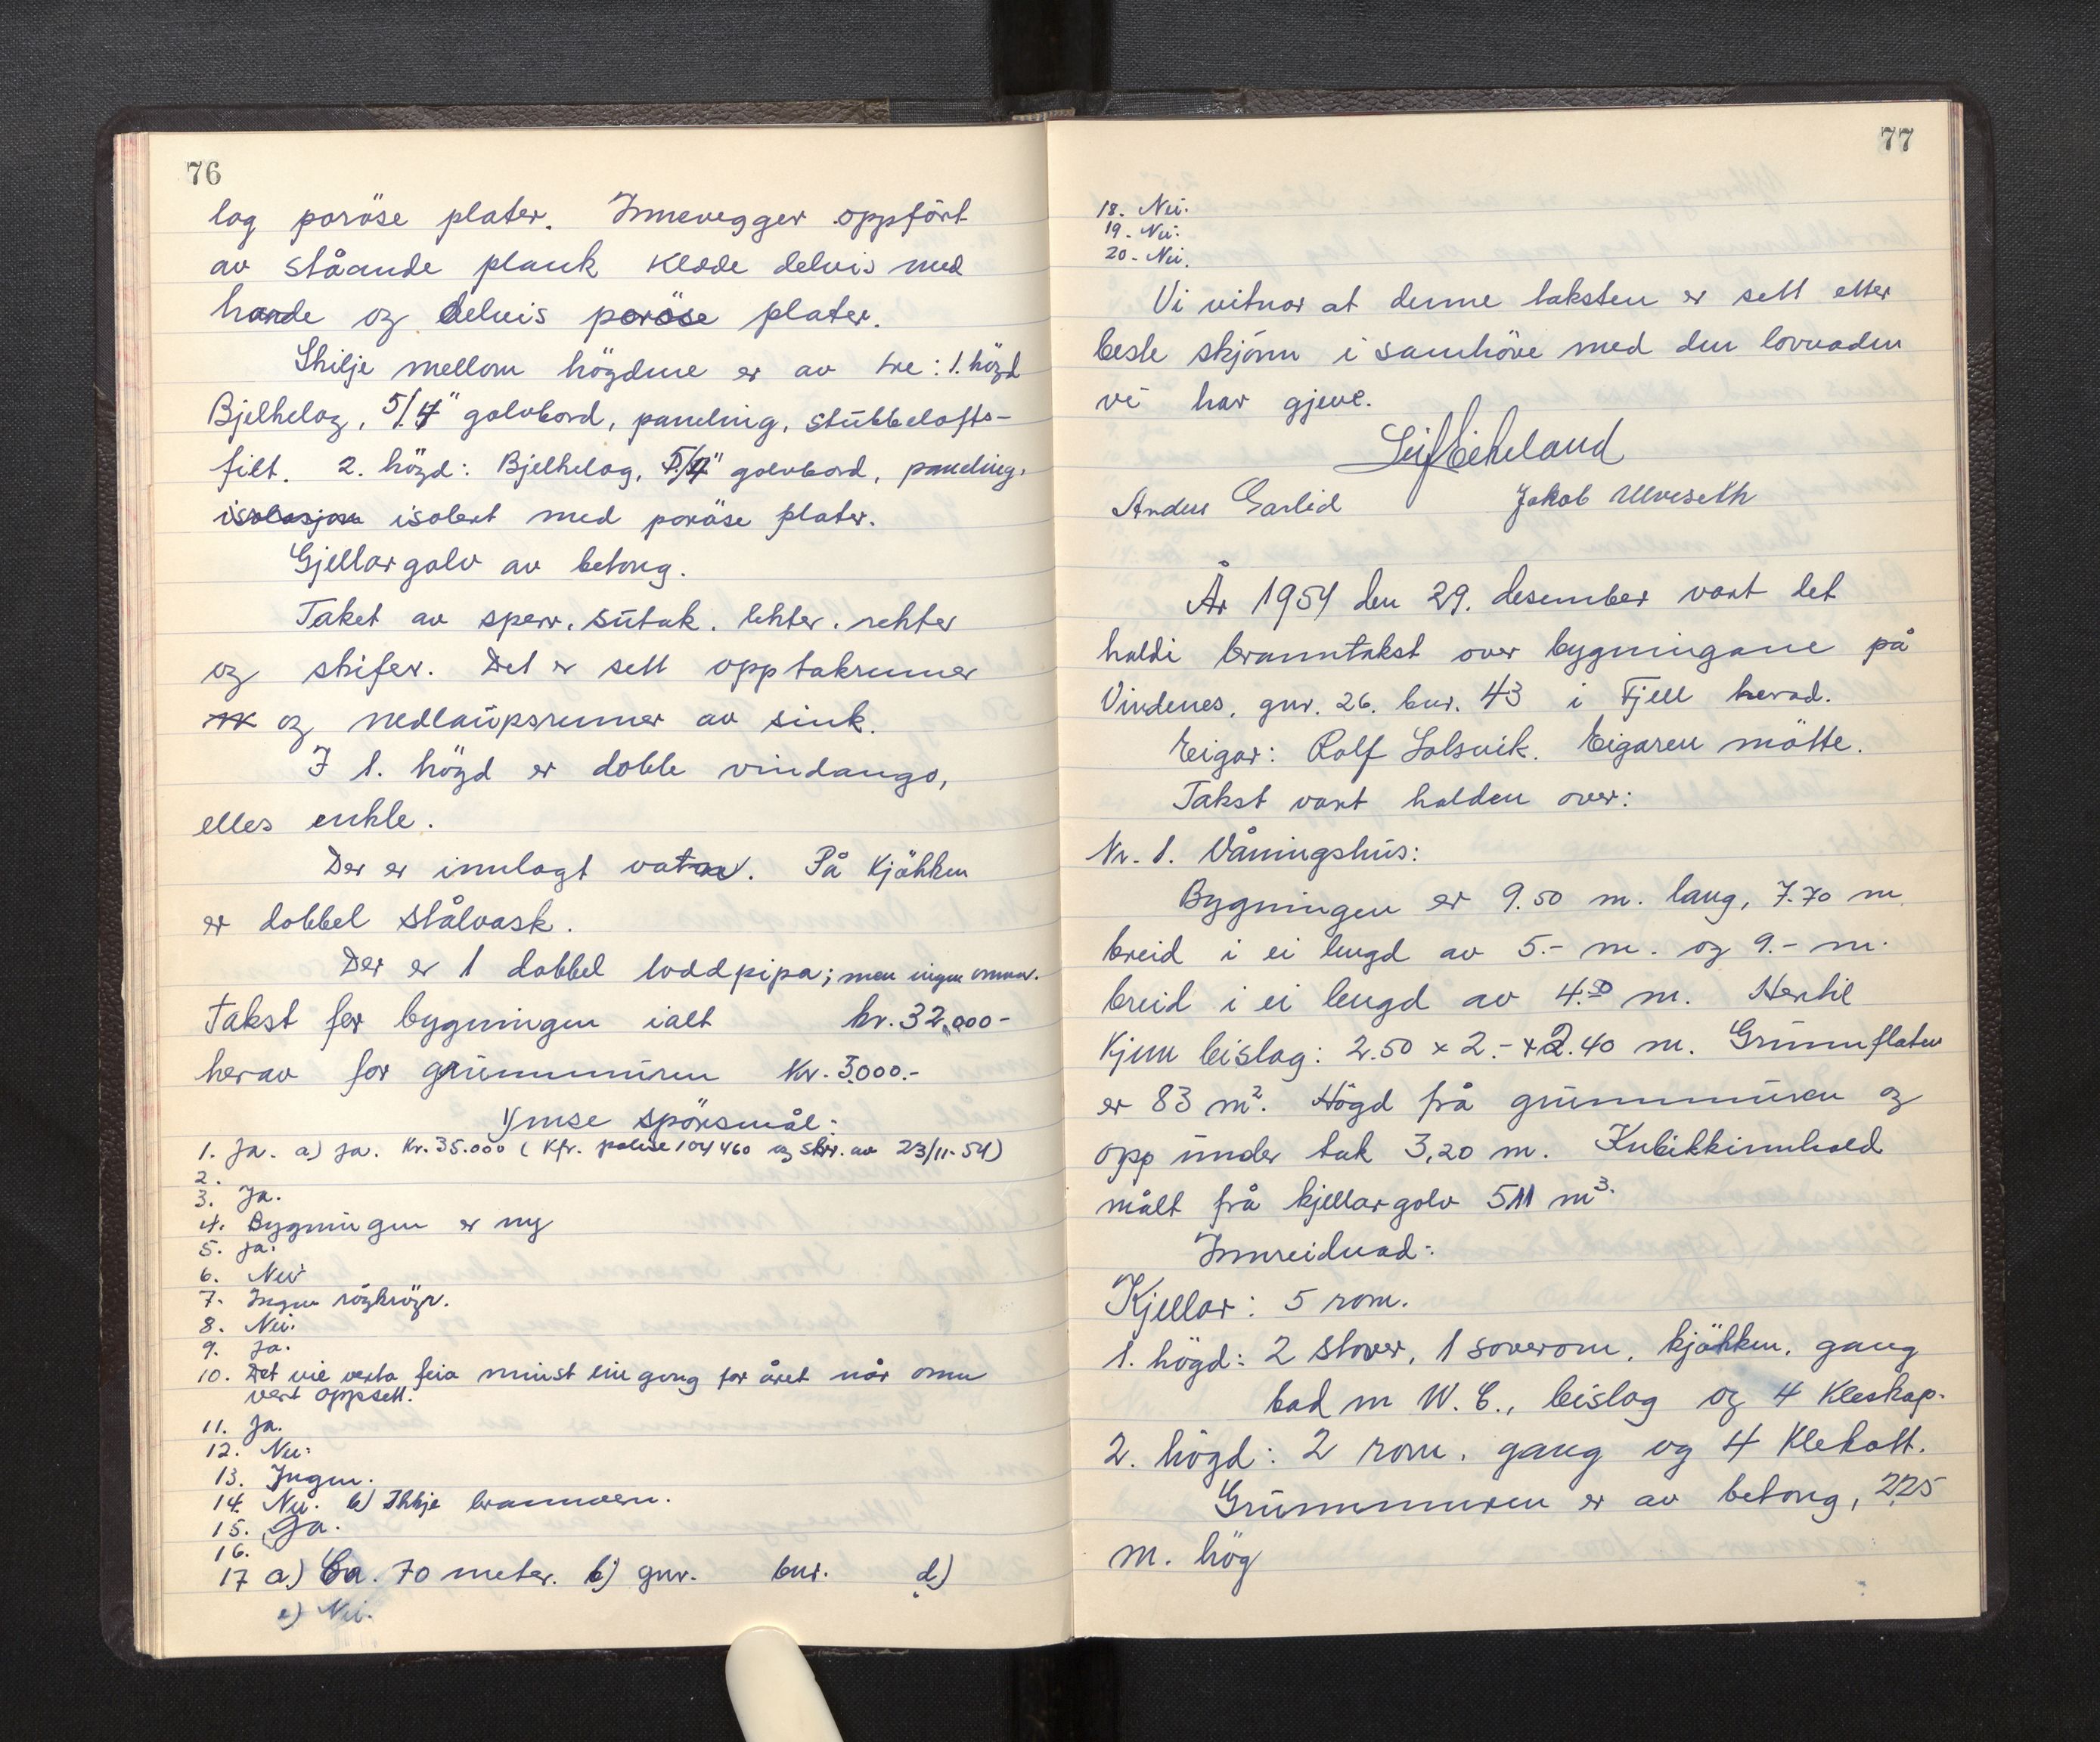 76
lag poröse plater. Innevegger oppfört
av ståande plank klædde delvis med
harde og delvis poröse plater.
Skilje mellom högdene er av tre: 1. högd
Bjelkelag, 5/4" golvbord, paneling, stubbelofts-
filt. 2. högd: Bjelkelag, 5/4" golvbord, paneling.
isolasjon isolert med poröse plater.
Gjellargolv av betong.
Taket av sperr, sutak, lekter, rekter
og skifer. Det er sett opp takrenner
og nedlaupsrenner av sink.
I 1. högd er doble vindaugo,
elles enkle.
Der er innlagt vatn. På kjökken
er dobbel stålvask.
Der er 1 dobbel loddpipa; men ingen omnar.
Takst for bygningen ialt kr. 32.000-
herav for grunnmuren kr. 3.000.-
Ymse spörsmål:
1. Ja. a) ja. Kr. 35.000 (Kfr. polise 104460 og skr. av 23/11-54)
2.
3. Ja.
4. Bygningen er ny
5. ja.
6. Nei
7. Ingen röykröyr.
8. Nei.
9. Ja.
10. Det vil verta feia minst ein gong for året når omn
vert oppsett.
11. Ja.
12. Nei.
13. Ingen.
14. Nei. b) Ikkje brannvern.
15. Ja.
16.
17 a.) Ca. 70 meter. b) gnr. bnr. d)
e) Nei.
77
18. Nei.
19. Nei.
20. Nei.
Vi vitnar at denne taksten er sett etter
beste skjönn i samhöve med den lovnaden
vi har gjeve.
Leif Eikeland
Anders Garlid Jakob Ulveseth
År 1954 den 29. desember vart det
haldi branntakst over bygningane på
Vindenes, gnr. 26. bnr. 43 i Fjell herad.
Eigar: Rolf Solsvik. Eigaren mötte.
Takst vart halden over:
Nr. 1. Våningshus:
Bygningen er 9.50 m. lang, 7.70 m
breid i ei lengd av 5.- m. og 9.- m.
breid i ei lengd av 4.50 m. Hertil
kjem bislag: 2.50 x 2.- x 2.40 m. Grunnflaten
er 83 m². Högd frå grunnmuren og
opp under tak 3,20 m. Kubikkinnhald
målt frå kjellargolv 511 m³.
Innreidnad:
Kjellar: 5 rom.
1. högd: 2 stover, 1 soverom, kjökken, gang
bad m W.C., bislag og 4 kleskap.
2. högd: 2 rom, gang og 4 klekott.
Grunnmuren er av betong, 2,25
m. hög